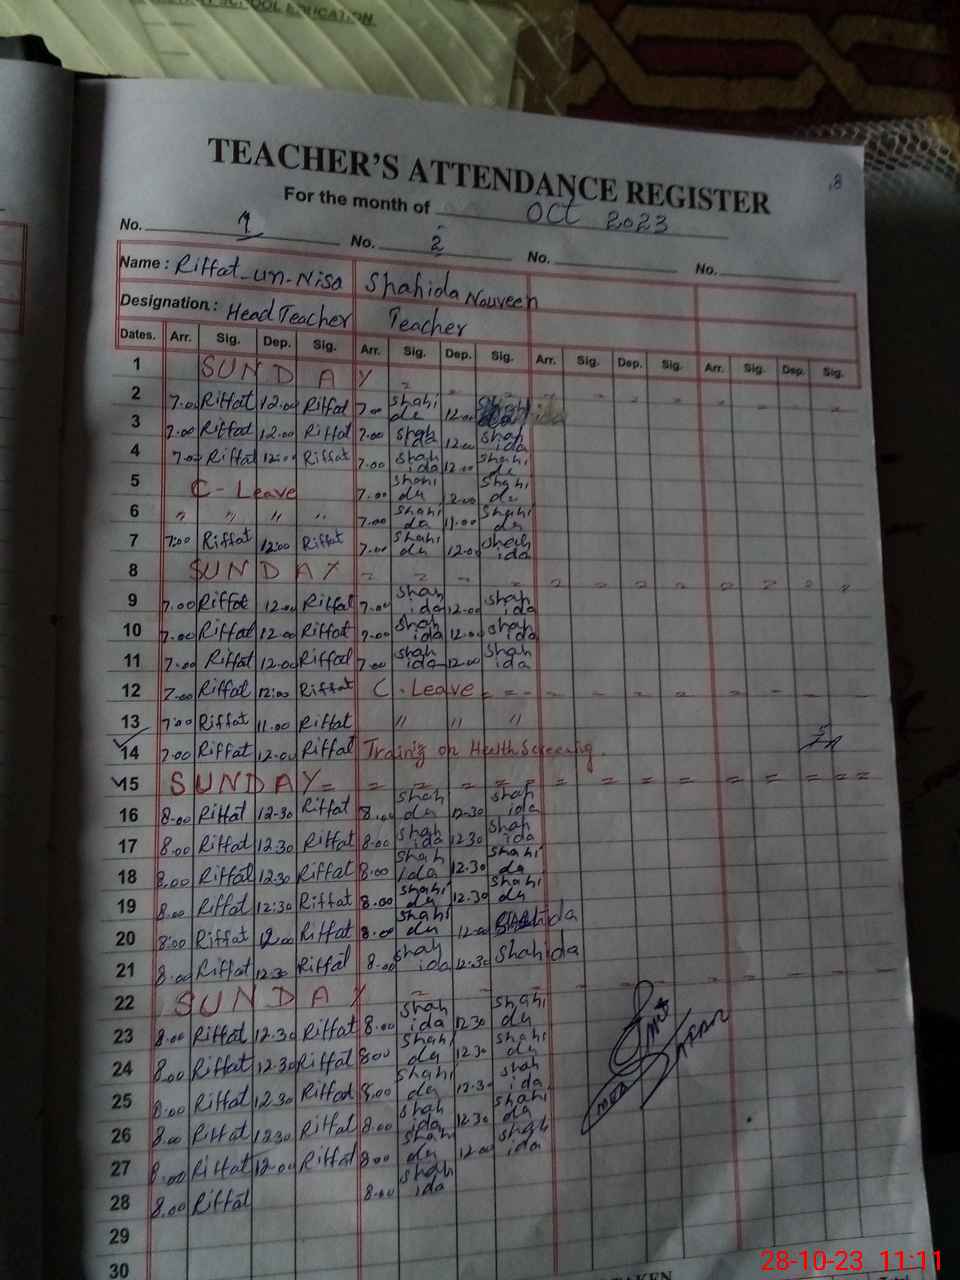 SCHOOL EDUCATION.
TEACHER'S ATTENDANCE REGISTER
For the month of Oct 2023
No. 1 No. 2 No. No.
Name : Riffat-un-Nisa Shahida Nouveen
Designation : Head Teacher Teacher
Dates. Arr. Sig. Dep. Sig. Arr. Sig. Dep. Sig. Arr. Sig. Dep. Sig. Arr. Sig. Dep. Sig.
1 SUNDAY
2 7.00 Riffat 12.00 Riffat 7.00 Shahida 12.00
3 7.00 Riffat 12.00 Riffat 7.00 Shahida 12.00 Shahida
4 7.00 Riffat 12:00 Riffat 7.00 Shahida 12.00 Shahida
5 C-Leave 7.00 Shahida 12.00 Shahida
6 " " " " 7.00 Shahida 11.00 Shahida
7 7:00 Riffat 12:00 Riffat 7.00 Shahida 12.00 Shahida
8 SUNDAY
9 7.00 Riffat 12.00 Riffat 7.00 Shahida 12.00 Shahida
10 7.00 Riffat 12.00 Riffat 7.00 Shahida 12.00 Shahida
11 7.00 Riffat 12.00 Riffat 7.00 Shahida 12.00 Shahida
12 7.00 Riffat 12:00 Riffat C. Leave
13 7:00 Riffat 11.00 Riffat " " "
14 7.00 Riffat 12.00 Riffat Training on Health Screening.
15 SUNDAY
16 8.00 Riffat 12.30 Riffat 8.00 Shahida 12.30 Shahida
17 8.00 Riffat 12.30 Riffat 8.00 Shahida 12.30 Shahida
18 8.00 Riffat 12.30 Riffat 8.00 Shahida 12.30 Shahida
19 8.00 Riffat 12:30 Riffat 8.00 Shahida 12.30 Shahida
20 8:00 Riffat 12.00 Riffat 8.00 Shahida 12.00 Shahida
21 8.00 Riffat 12.30 Riffat 8.00 Shahida 12.30 Shahida
22 SUNDAY
23 8.00 Riffat 12.30 Riffat 8.00 Shahida 12.30 Shahida
24 8.00 Riffat 12.30 Riffat 8.00 Shahida 12.30 Shahida
25 8.00 Riffat 12.30 Riffat 8.00 Shahida 12.30 Shahida
26 8.00 Riffat 12.30 Riffat 8.00 Shahida 12.30 Shahida
27 8.00 Riffat 12.00 Riffat 8.00 Shahida 12.00 Shahida
28 8.00 Riffat 8.00 Shahida
29
30
28-10-23 11:11